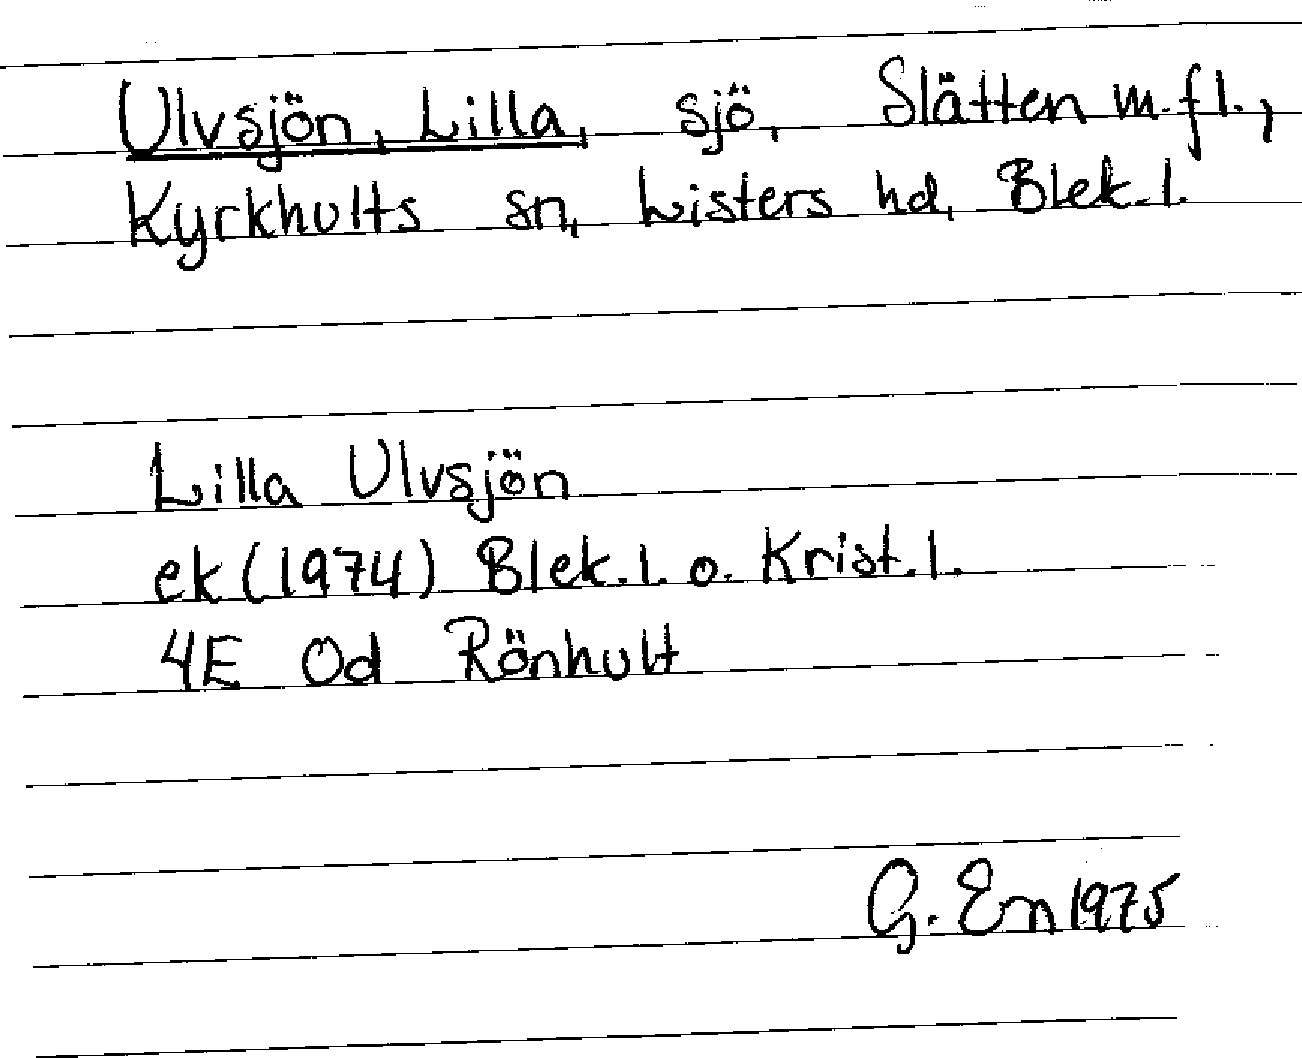 Ulvsjön, Lilla, sjö, Slätten m.fl.,
Kyrkhults sn, Listers hd, Blek.l.
Lilla Ulvsjön
ek (1974) Blek.l. o. Krist.l.
4E Od Rönhult
G. En 1975